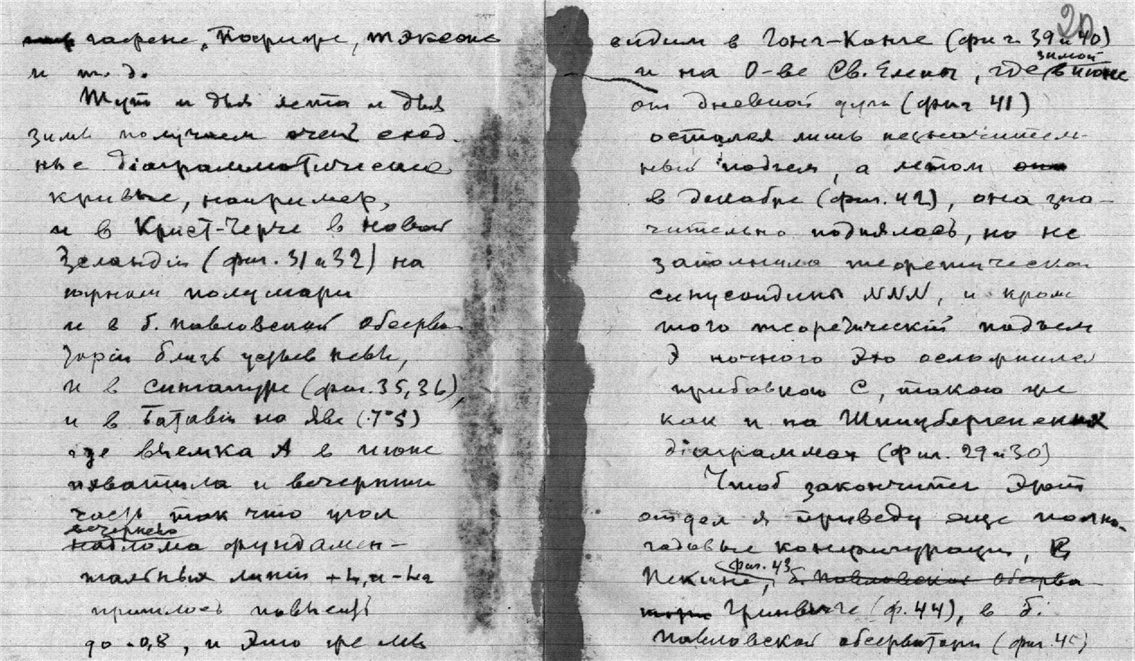 гафене, Париже, Тэксоне
и т. д.
Тут и для лета и для
зимы получаем очень сход-
ные діаграмматические
кривые, например,
и в Крист-Черче в новой
Зеландіи (фиг. 31 и 32) на
южном полушари
и в б. павловской обсерва
торіи близь устьев невы,
и в сингапуре (фиг. 35, 36),
и в Батавіи на Яве (7°S)
где выемка А в июне
и вечерния
часть так что угол
вечерняго
надлома фундамен-
тальных линій +L, и -L2
пришлось
до -0,8, и это же мы
20
видим в Гонг-Конге (фиг. 39 и 40)
зимой
и на О-ве Св. Елены, где в июне
от дневной дуги (фиг 41)
остался лишь незначитель-
ный подъем, а летом она
в декабре (фиг. 42), она зна-
чительно поднялась, но не
заполнила теоретической
синусоидины NNN, и кроме
того теоретическій подъем
Э ночного Эго осложнился
прибавкой С, такою же
как и на Шпицбергенских
діаграммах (фиг. 29 и 30)
Чтоб закончить этот
отдел я приведу еще полно-
годовые конфигурации, В
фиг. 43
Пекине, б. Павловской обсерва
тори Гринвиче (ф. 44), в б.
павловской обсерватори (фиг. 45)